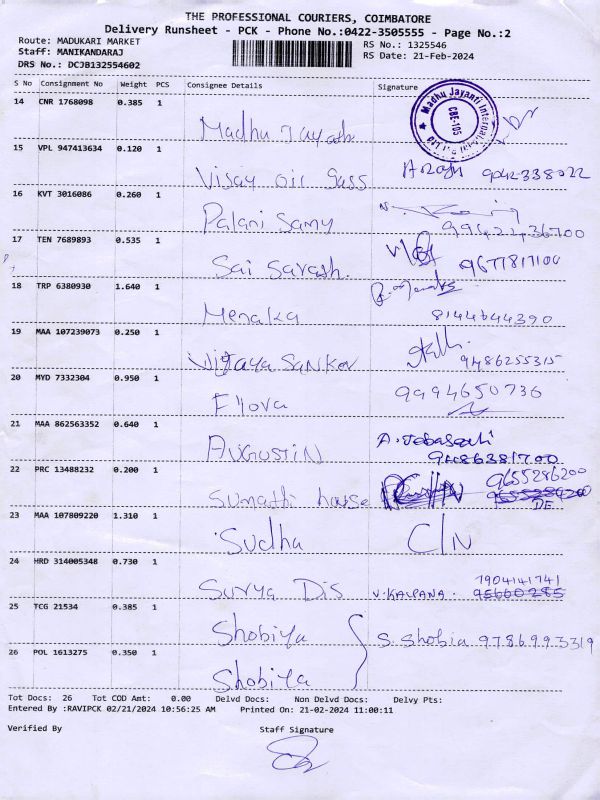 THE PROFESSIONAL COURIERS, COIMBATORE
Delivery Runsheet - PCK - Phone No.:0422-3505555 - Page No.:2
Route: MADUKARI MARKET RS No.: 1325546
Staff: MANIKANDARAJ RS Date: 21-Feb-2024
DRS No.: DCJB132554602
S No Consignment No Weight PCS Consignee Details Signature
14 CNR 1768098 0.385 1 Madhu Jayath
Madhu Jayanti International
CBE-105
15 VPL 947413634 0.120 1 Vijay oil gass 9042338022
16 KVT 3016086 0.260 1 Palani Samy 9942236700
17 TEN 7689893 0.535 1 Sai Sarash. 9677817100
18 TRP 6380930 1.640 1 Menaka 8144644390
19 MAA 107239073 0.250 1 Vijaya Sankar 9486255315
20 MYD 7332304 0.950 1 9994650736
21 MAA 862563352 0.640 1 AUGUSTIN 9486381700
22 PRC 13488232 0.200 1 Sumathi house 9655286200
23 MAA 107809220 1.310 1 Sudha C/N
24 HRD 314005348 0.730 1 Surya Dis V.KALPANA. 7904141741
25 TCG 21534 0.385 1 Shobiya S. Shobia 9786993319
26 POL 1613275 0.350 1 Shobiya
Tot Docs: 26 Tot COD Amt: 0.00 Delvd Docs: Non Delvd Docs: Delvy Pts:
Entered By :RAVIPCK 02/21/2024 10:56:25 AM Printed On: 21-02-2024 11:00:11
Verified By Staff Signature